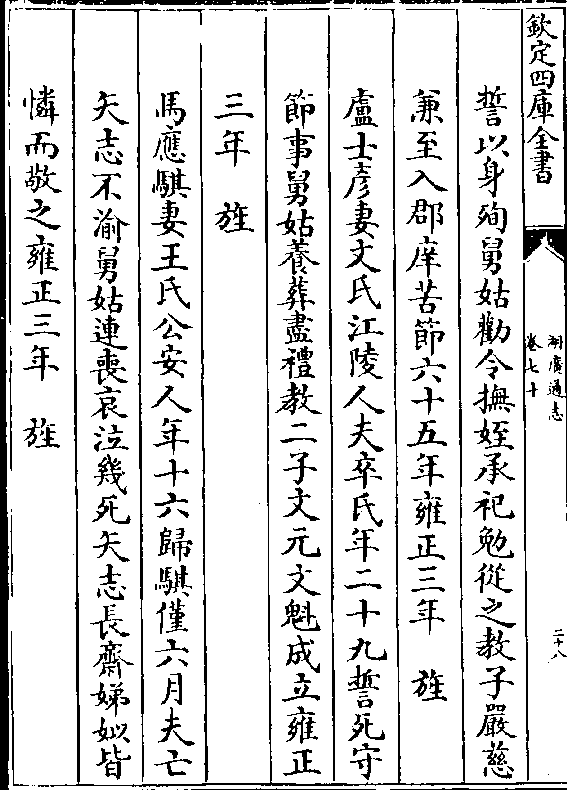 欽定四庫全書
湖廣通志
卷七十
二十八
誓以身殉舅姑勸令撫姪承祀勉從之教子嚴慈
兼至入郡庠苦節六十五年雍正三年 旌
盧士彥妻文氏江陵人夫卒氏年二十九誓死守
節事舅姑養葬盡禮教二子文元文魁成立雍正
三年 旌
馬應騏妻王氏公安人年十六歸騏僅六月夫亡
矢志不渝舅姑連喪哀泣幾死矢志長齋娣姒皆
憐而敬之雍正三年 旌